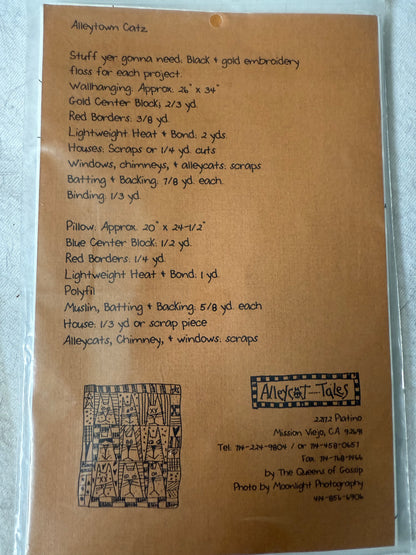 Alleytown Catz
Stuff yer gonna need: Black & gold embroidery
floss for each project.
Wallhanging: Approx. 26" x 34"
Gold Center Block; 2/3 yd.
Red Borders: 3/8 yd.
Lightweight Heat & Bond: 2 yds.
Houses: Scraps or 1/4 yd. cuts
Windows, chimneys, & alleycats: scraps
Batting & Backing: 7/8 yd. each.
Binding: 1/3 yd.
Pillow: Approx. 20" x 24-1/2"
Blue Center Block: 1/2 yd.
Red Borders: 1/4 yd.
Lightweight Heat & Bond: 1 yd.
Polyfil
Muslin, Batting & Backing: 5/8 yd. each
House: 1/3 yd or scrap piece
Alleycats, Chimney, & windows: scraps
Alleycat---Tales
22172 Platino
Mission Viejo, CA 92691
Tel: 714-224-9804 / or 714-458-0657
Fax 714-768-7466
by The Queens of Gossip
Photo by Moonlight Photography
414-856-6906